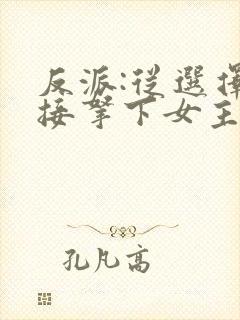 反派:從選擇
接拏下女主
孔凡高